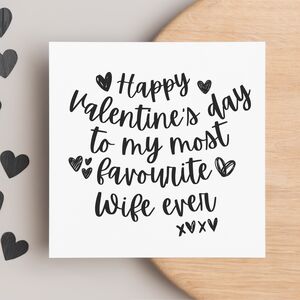 Happy
Valentine's day
to my most
favourite
Wife ever
xoxo